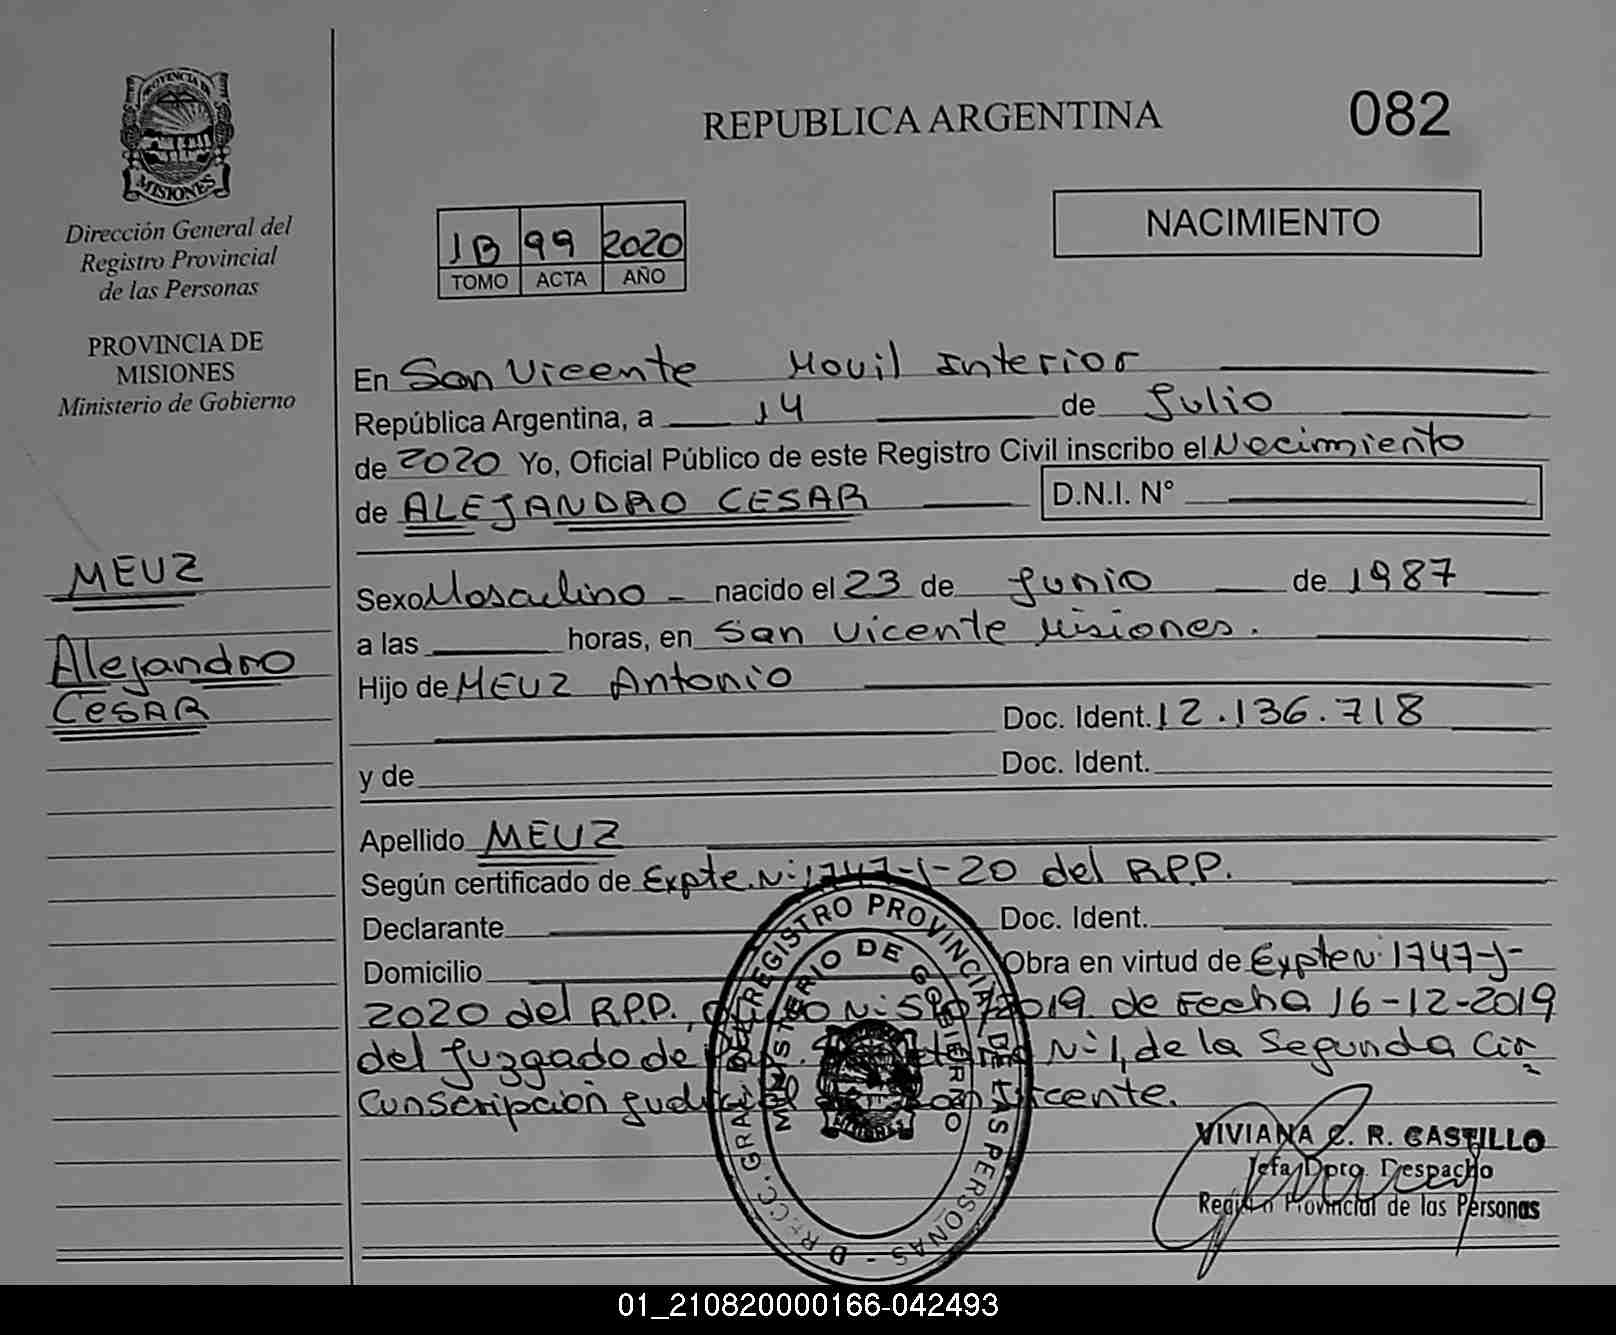 PROVINCIA DE
MISIONES
Dirección General del
Registro Provincial
de las Personas
PROVINCIA DE
MISIONES
Ministerio de Gobierno
MEUZ
Alejandro
CESAR
REPUBLICA ARGENTINA
082
1B 99 2020
TOMO ACTA AÑO
NACIMIENTO
En San Vicente Movil Interior
República Argentina, a 14 de Julio
de 2020 Yo, Oficial Público de este Registro Civil inscribo el Nacimiento
de ALEJANDRO CESAR D.N.I. Nº
Sexo Masculino - nacido el 23 de Junio de 1987
a las horas, en San Vicente Misiones.
Hijo de MEUZ Antonio
Doc. Ident. 12.136.718
y de Doc. Ident.
Apellido MEUZ
Según certificado de Expte. Nº 1747-J-20 del R.P.P.
Declarante Doc. Ident.
Domicilio Obra en virtud de Expte Nº 1747-J-
2020 del R.P.P., Nº 2019 de Fecha 16-12-2019
del Juzgado de Nº 1, de la Segunda Cir
cunscripción Judicial San Vicente.
DIRECC. GRAL. DEL REGISTRO PROVINCIAL DE LAS PERSONAS
MINISTERIO DE GOBIERNO
MISIONES
VIVIANA C. R. CASTILLO
Jefa Dpto. Despacho
Registro Provincial de las Personas
01_210820000166-042493